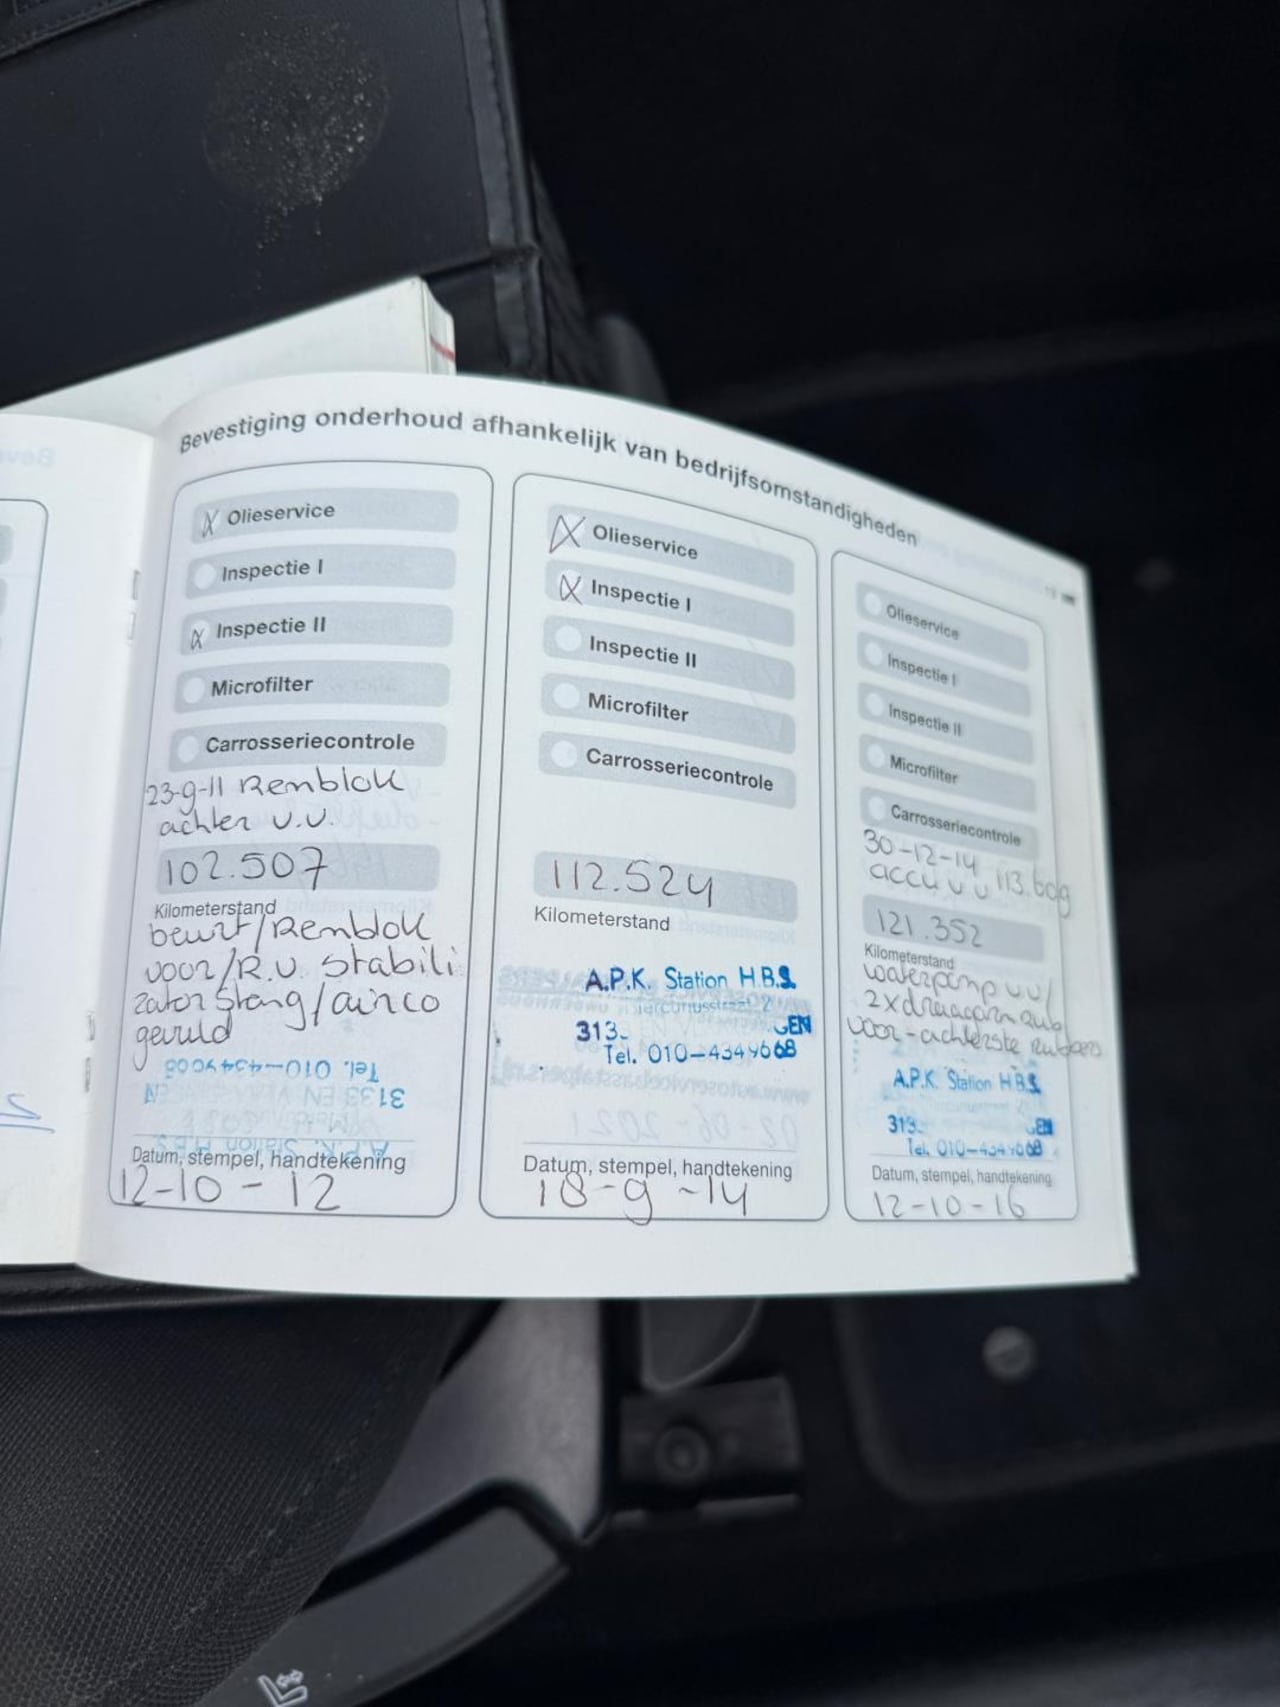 Bevestiging onderhoud afhankelijk van bedrijfsomstandigheden
X Olieservice
Inspectie I
X Inspectie II
Microfilter
Carrosseriecontrole
23-9-11 Remblok
achter v.v.
102.507
Kilometerstand
beurt/Remblok
voor/R.V. stabili
zator stang/airco
gevuld
Tel. 010-4349668
3133 EN
A.P.K. Station H.B.S.
Datum, stempel, handtekening
12-10-12
X Olieservice
X Inspectie I
Inspectie II
Microfilter
Carrosseriecontrole
112.524
Kilometerstand
A.P.K. Station H.B.S.
313 GEN
Tel. 010-4349668
Datum, stempel, handtekening
18-9-14
Olieservice
Inspectie I
Inspectie II
Microfilter
Carrosseriecontrole
30-12-14
accu v v 113.609
121.352
Kilometerstand
waterpomp vv/
2x draagarm
voor-achterste rubbers
A.P.K. Station H.B.S.
313 EN
Tel. 010-4349668
Datum, stempel, handtekening
12-10-16